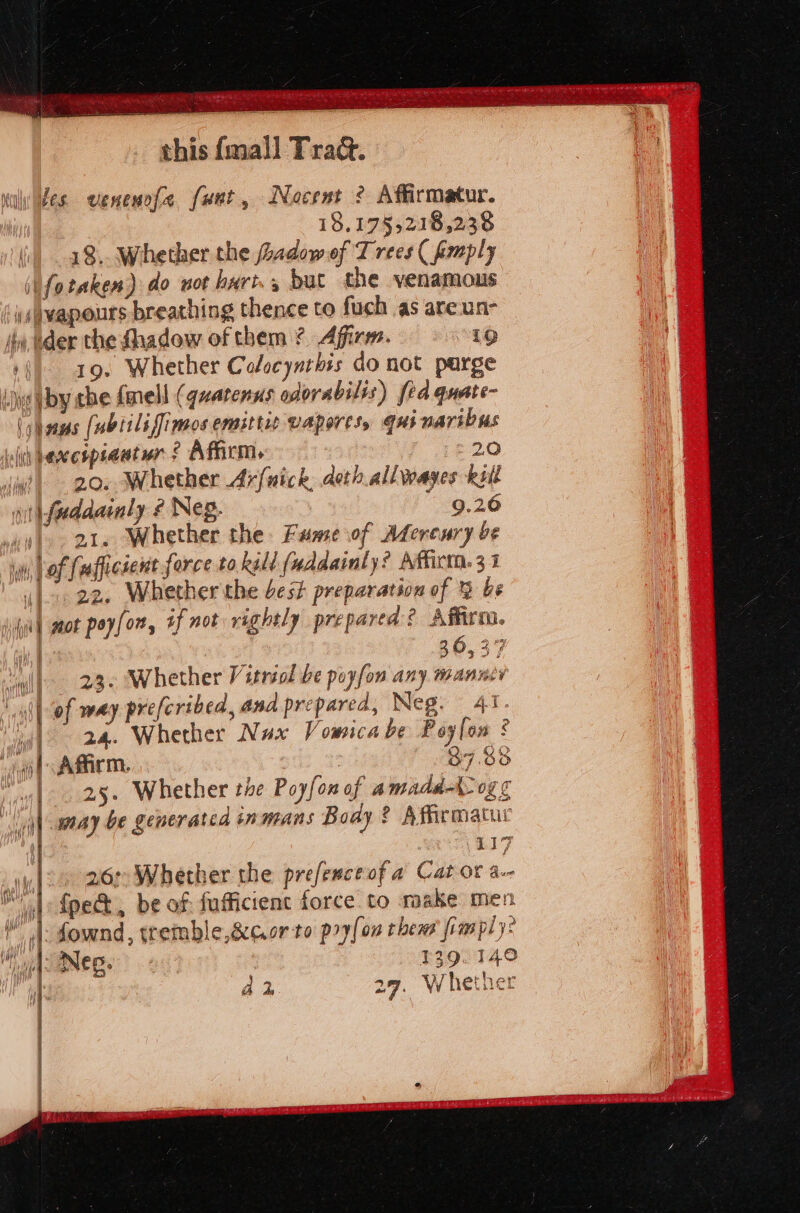 this ſmall Tract.
les venenoſæ ſunt, Nocent ? Affirmatur.
18.175,218,238
18. Whether the ſhadow of Trees (ſimply
ſo taken) do not hurt ; but the venamous
vapours breathing thence to ſuch as are un-
der the ſhadow of them ? Affirm. 19
19. Whether Colocynthis do not purge
by the ſmell (quatenus odorabilis) ſed quate-
nus ſubtiliſſimos emittit vapores, qui naribus
excipiantur ? Affirm. 20
20. Whether Arſnick doth allwayes kill
ſuddainly ? Neg. 9.26
21. Whether the Fume of Mercury be
of ſufficient force to kill ſuddainly? Affirm. 31
22. Whether the beſt preparation of ☿ be
not poyſon, if not rightly prepared ? Affirm.
36,37
23. Whether Vitriol be poyſon any manner
of way preſcribed, and prepared, Neg. 41.
24. Whether Nux Vomica be Poyſon ?
Affirm. 87.88
25. Whether the Poyſon of a madd-Dogg
may be generated in mans Body ? Affirmatur
117
26. Whether the preſence of a Cat or a-
ſpect, be of ſufficient force to make men
ſownd, tremble, &c. or to poyſon them ſimply?
Neg. 139.140
d 2 27. Whether